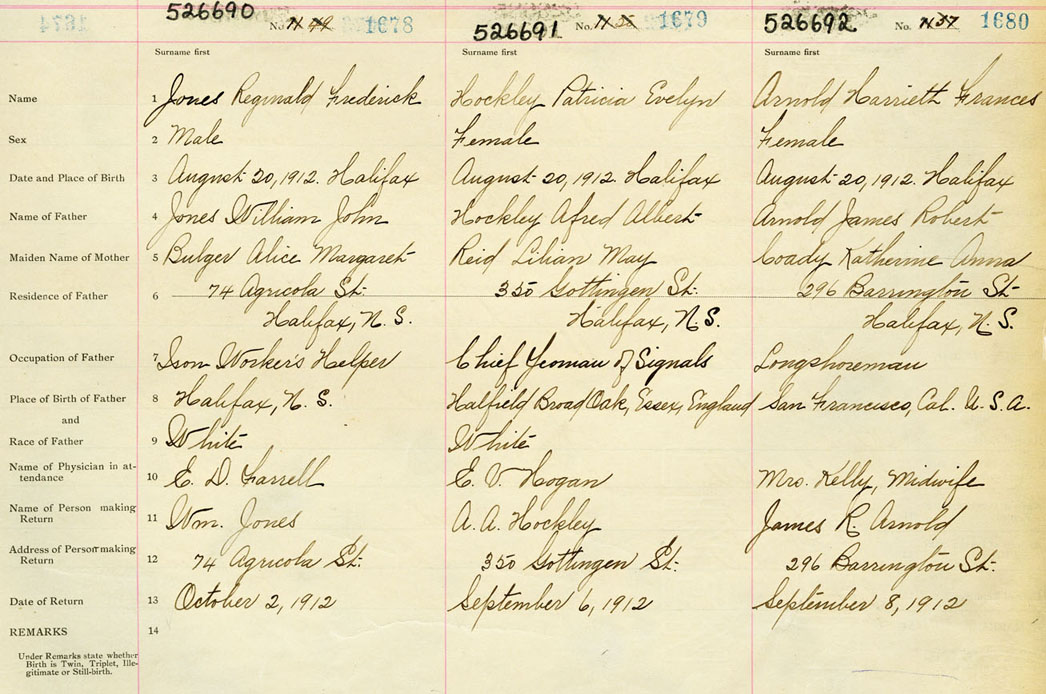 526690 No. 1678 526691 No. 1679 526692 No. 1680
Surname first Surname first Surname first
Name 1 Jones Reginald Frederick Hockley Patricia Evelyn Arnold Harrieth Frances
Sex 2 Male Female Female
Date and Place of Birth 3 August 20, 1912. Halifax August 20, 1912. Halifax August 20, 1912. Halifax
Name of Father 4 Jones William John Hockley Afred Albert Arnold James Robert
Maiden Name of Mother 5 Bulger Alice Margaret Reid Lilian May Coady Katherine Anna
Residence of Father 6 74 Agricola St. 350 Gottingen St. 296 Barrington St.
Halifax, N. S. Halifax, N. S. Halifax, N. S.
Occupation of Father 7 Iron Worker's Helper Chief Yeoman of Signals Longshoreman
Place of Birth of Father 8 Halifax, N. S. Hatfield Broad Oak, Essex, England San Francisco, Cal. U. S. A.
and
Race of Father 9 White White
Name of Physician in at-
tendance 10 E. D. Farrell E. V. Hogan Mrs. Kelly, Midwife
Name of Person making
Return 11 Wm. Jones A. A. Hockley James R. Arnold
Address of Person making
Return 12 74 Agricola St. 350 Gottingen St. 296 Barrington St.
Date of Return 13 October 2, 1912 September 6, 1912 September 8, 1912
REMARKS 14
Under Remarks state whether
Birth is Twin, Triplet, Ille-
gitimate or Still-birth.